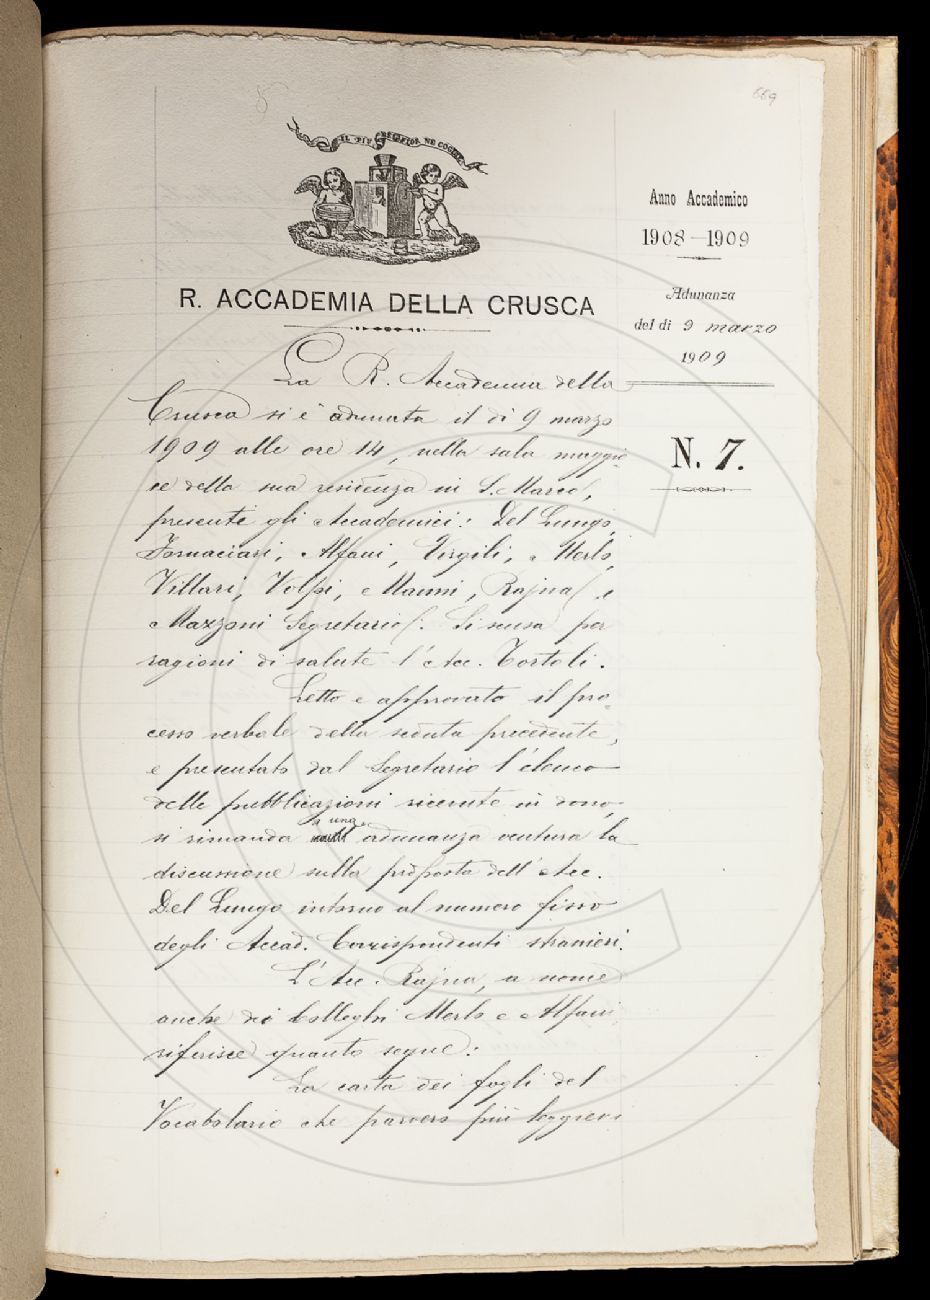 669
IL PIÙ BEL FIOR NE COGLIE
Anno Accademico
1908-1909
Adunanza
del dì 9 marzo
1909
N. 7.
R. ACCADEMIA DELLA CRUSCA
La R. Accademia della
Crusca si è adunata il dì 9 marzo
1909 alle ore 14, nella sala maggio-
re della sua residenza in S. Marco,
presenti gli Accademici: Del Lungo,
Fornaciari, Alfani, Virgili, Merlo,
Villari, Volpi, Manni, Rajna e
Mazzoni Segretario. Si scusa per
ragioni di salute l'Acc. Tortoli.
Letto e approvato il pro-
cesso verbale della seduta precedente,
e presentato dal Segretario l'elenco
delle pubblicazioni ricevute in dono,
si rimanda a una adunanza ventura la
discussione sulla proposta dell'Acc.
Del Lungo intorno al numero fisso
degli Accad. Corrispondenti stranieri.
L'Acc. Rajna, a nome
anche dei Colleghi Merlo e Alfani
riferisce quanto segue:
La carta dei fogli del
Vocabolario che parvero più leggieri